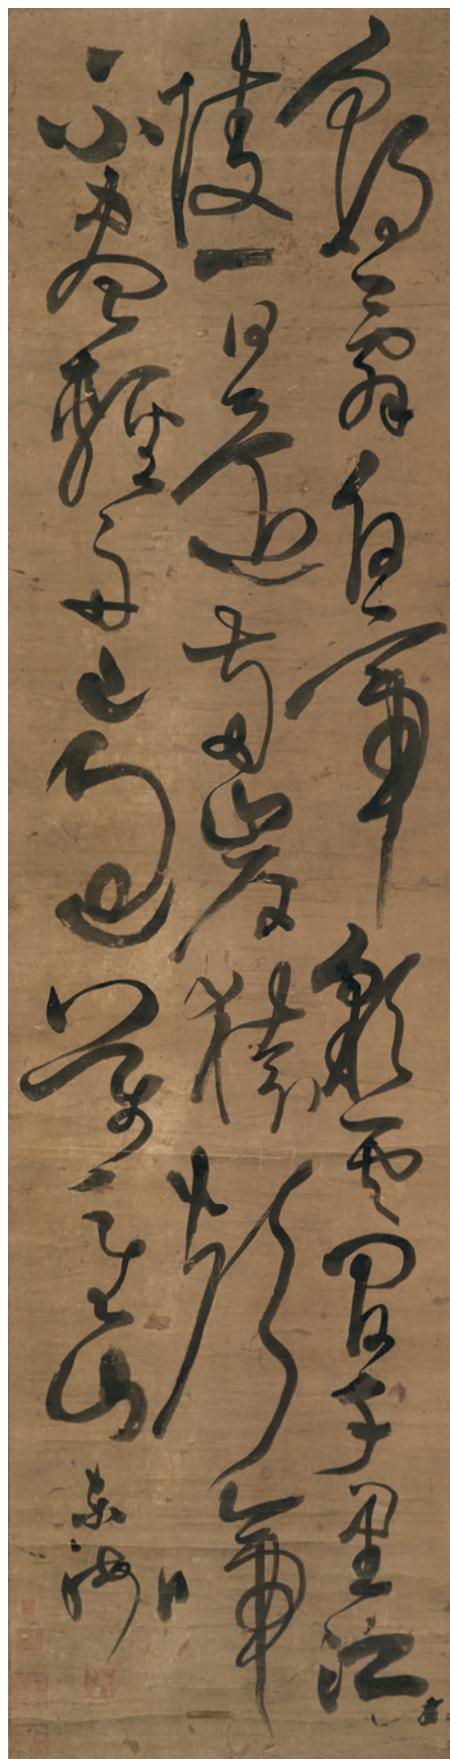 朝辭白帝彩雲間千里江
陵一日還兩岸猿聲啼
不盡輕舟已過萬重山
東海